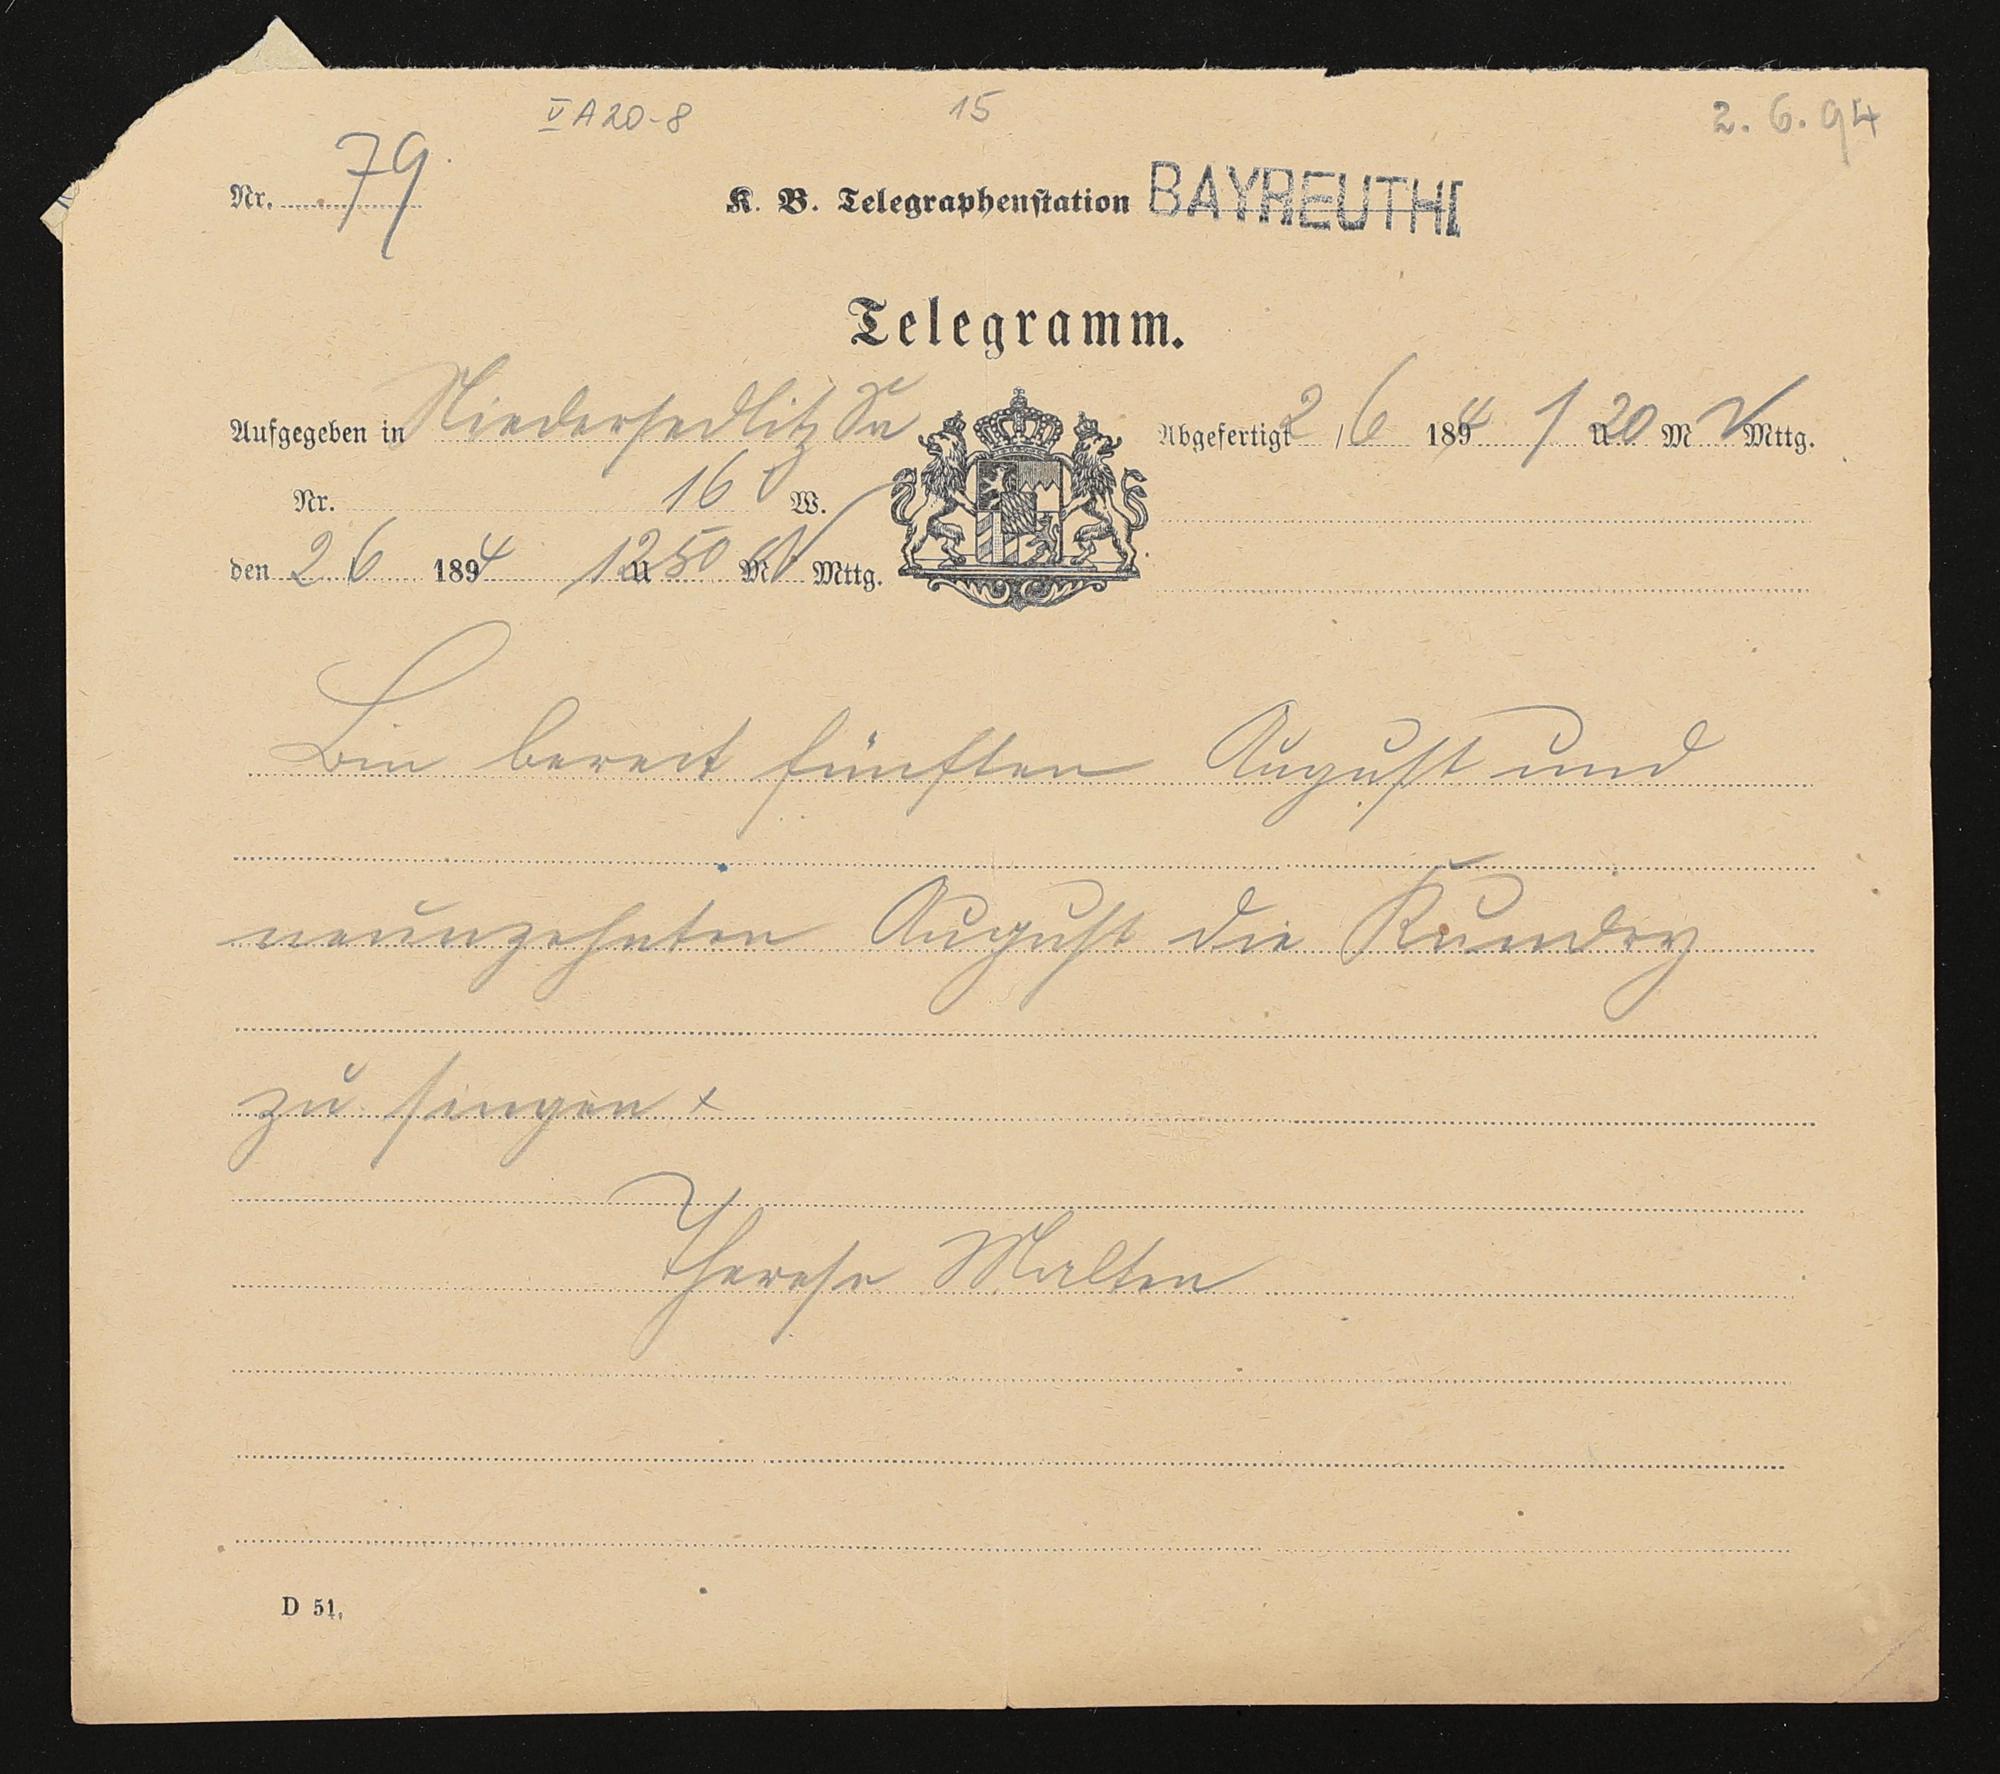 V A 20-8
15
2. 6. 94
Nr. 79
K. B. Telegraphenstation BAYREUTH
Telegramm.
Aufgegeben in Niedersedlitz Sa
Abgefertigt 2/6 1894 1 U 20 M N Mttg.
Nr. 16 W.
den 2 6 1894 12 U 50 M N Mttg.
Bin bereit fünften August und
neunzehnten August die Kundry
zu singen +
Therese Malten
D 51.